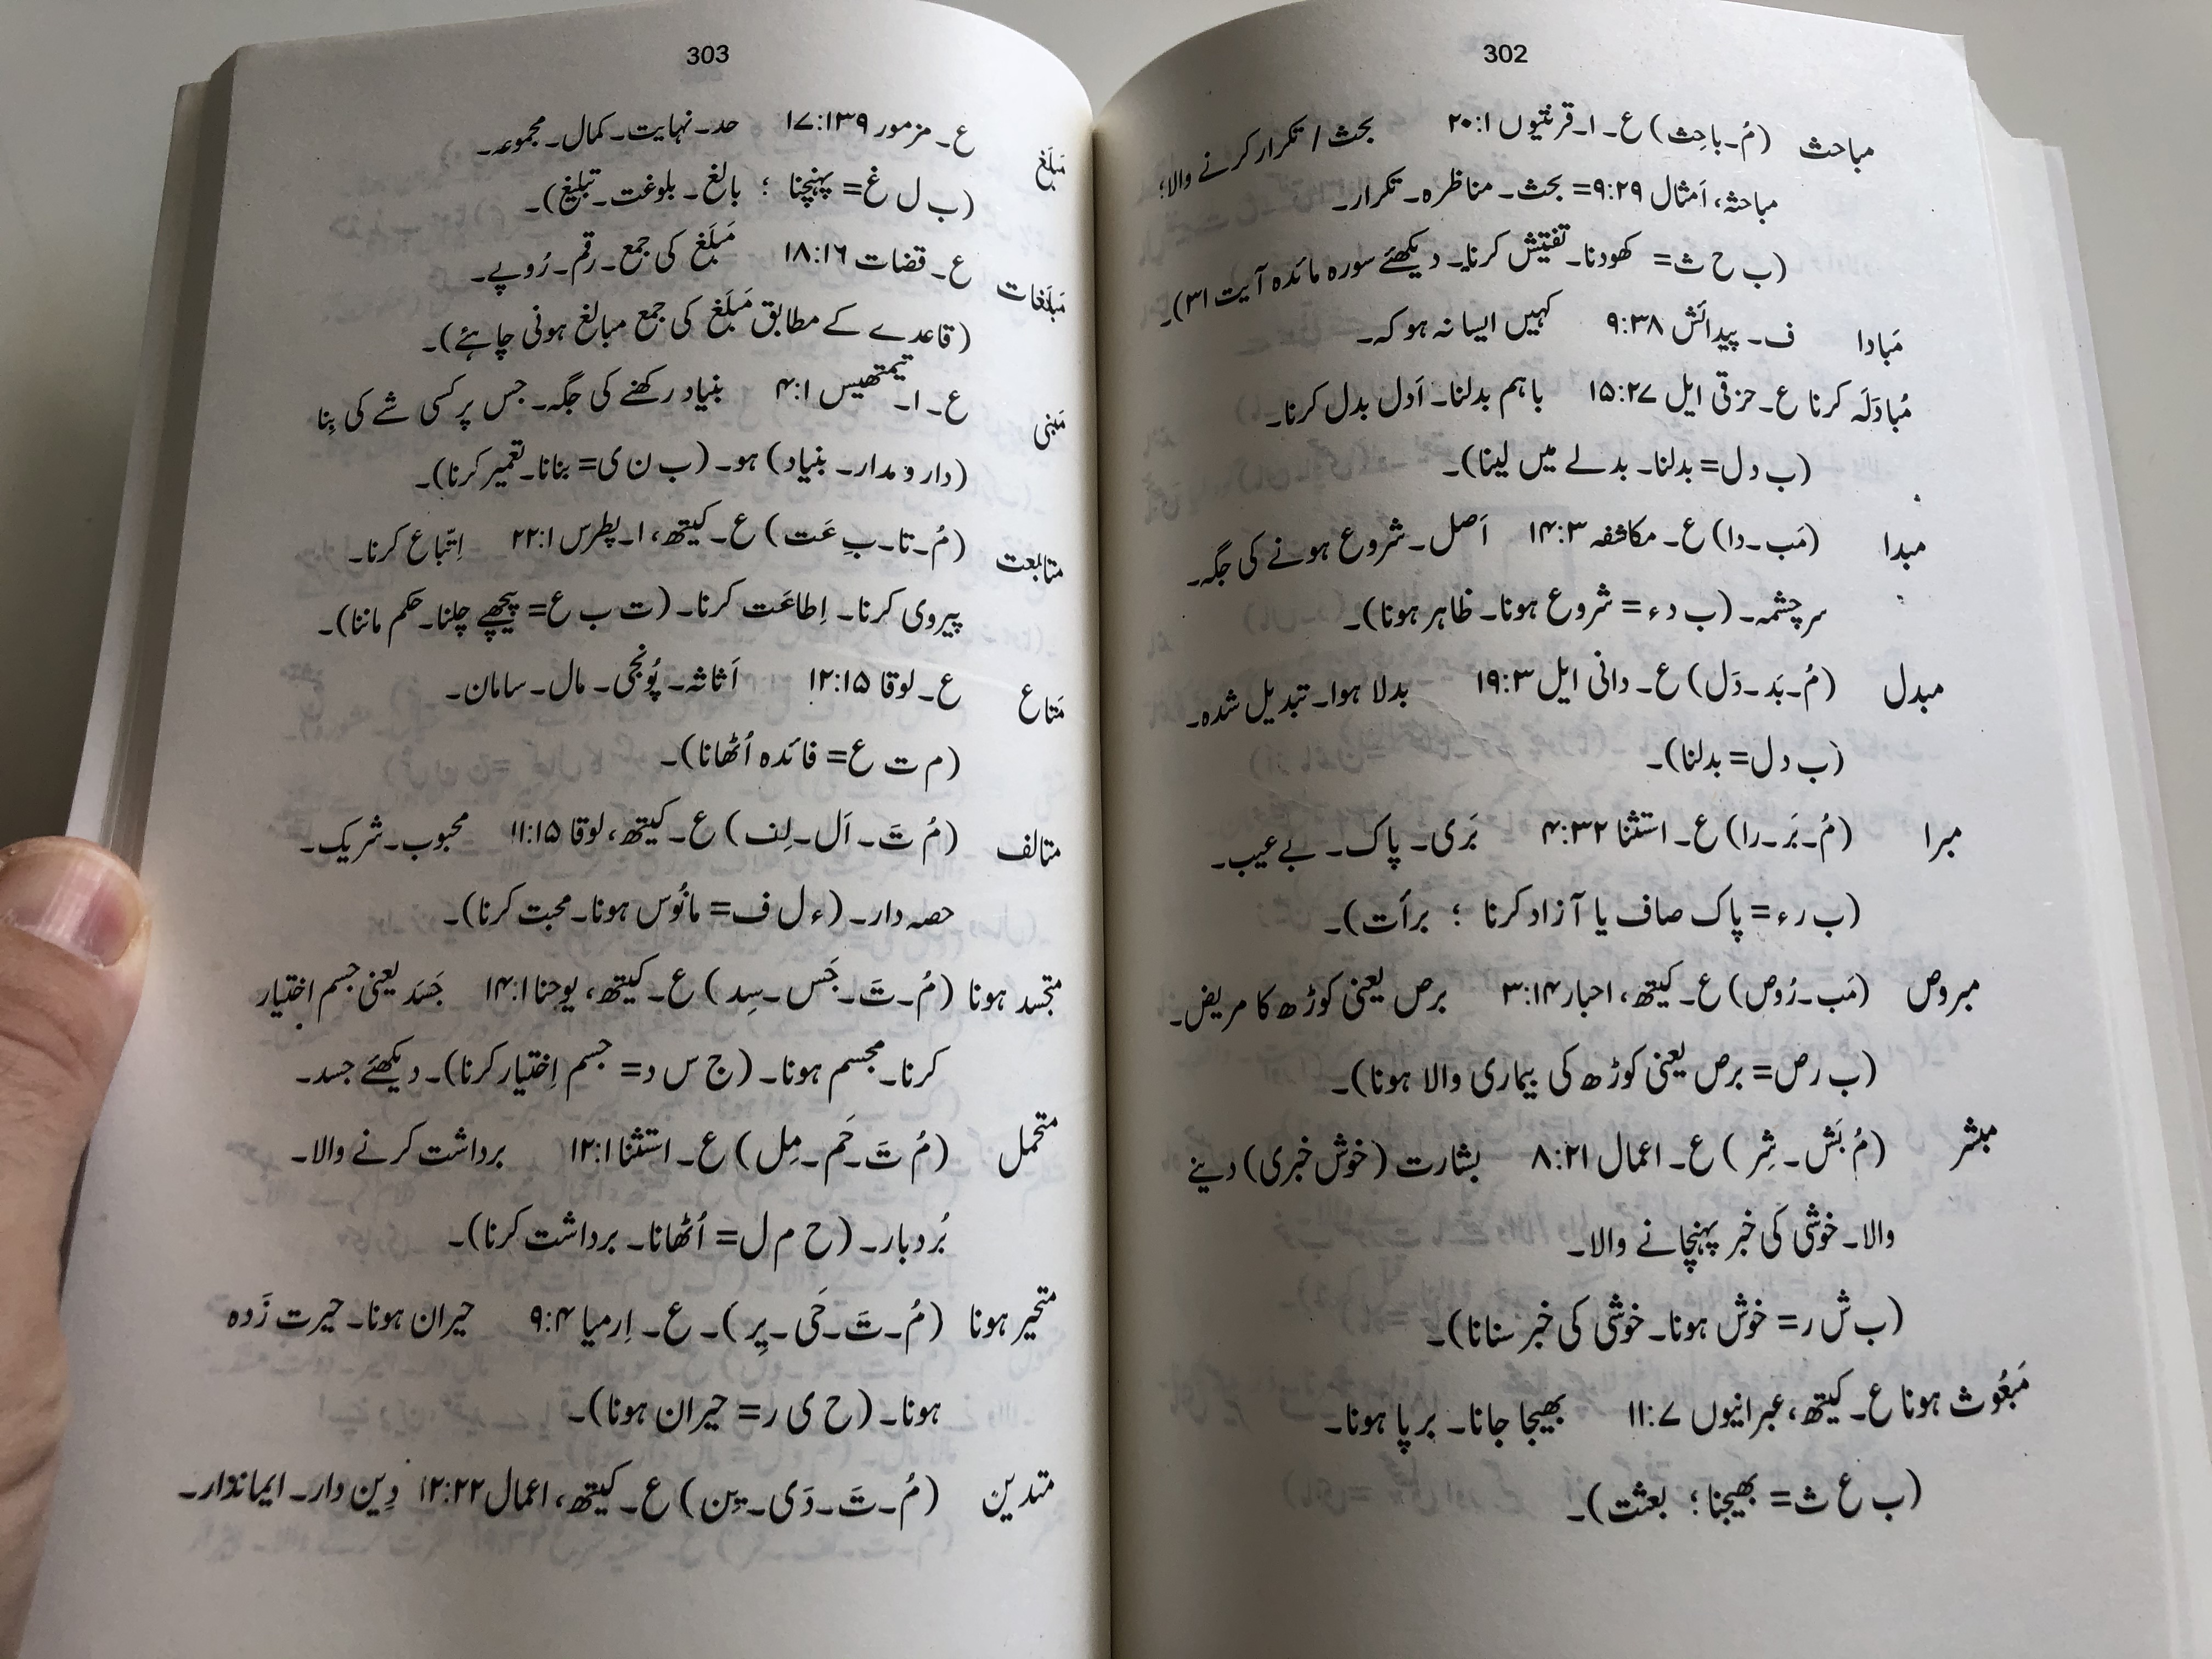 302
مباحث (مُ۔باحِث) ع۔ ۱۔قرنتیوں ۲۰:۱ بحث / تکرار کرنے والا؛
مباحثہ، اَمثال ۹:۲۹= بحث۔ مناظرہ۔ تکرار۔
(ب ح ث= کھودنا۔ تفتیش کرنا۔ دیکھئے سورہ مائدہ آیت ۳۱)۔
مَبادا ف۔ پیدائش ۹:۳۸ کہیں ایسا نہ ہو کہ۔
مُبادَلَہ کرنا ع۔ حزقی ایل ۱۵:۲۷ باہم بدلنا۔ اَدل بدل کرنا۔
(ب د ل= بدلنا۔ بدلے میں لینا)۔
مبدا (مَب۔دا) ع۔ مکاشفہ ۱۴:۳ اَصل۔ شروع ہونے کی جگہ۔
سرچشمہ۔ (ب دء = شروع ہونا۔ ظاہر ہونا)۔
مبدل (مُ۔بَد۔دَل) ع۔ دانی ایل ۱۹:۳ بدلا ہوا۔ تبدیل شدہ۔
(ب د ل= بدلنا)۔
مبرا (مُ۔بَر۔را) ع۔ استثنا ۴:۳۲ بَری۔ پاک۔ بے عیب۔
(ب رء = پاک صاف یا آزاد کرنا ؛ برأت)۔
مبروص (مَب۔رُوص) ع۔ کیتھ، احبار ۳:۱۴ برص یعنی کوڑھ کا مریض۔
(ب رص= برص یعنی کوڑھ کی بیماری والا ہونا)۔
مبشر (مُ بَش۔شِر) ع۔ اعمال ۸:۲۱ بشارت (خوش خبری) دینے
والا۔ خوشی کی خبر پہنچانے والا۔
(ب ش ر= خوش ہونا۔ خوشی کی خبر سنانا)۔
مَبعُوث ہونا ع۔ کیتھ، عبرانیوں ۱۱:۷ بھیجا جانا۔ برپا ہونا۔
(ب ع ث= بھیجنا؛ بعثت)۔
303
مَبلَغ ع۔ مزمور ۱۷:۱۳۹ حد۔ نہایت۔ کمال۔ مجموعہ۔
(ب ل غ= پہنچنا ؛ بالغ۔ بلوغت۔ تبلیغ)۔
مَبلَغات ع۔ قضات ۱۸:۱۶ مَبلَغ کی جمع۔ رقم۔ رُوپے۔
(قاعدے کے مطابق مَبلَغ کی جمع مبالغ ہونی چاہئے)۔
مَبنی ع۔ ۱۔تیمتھیس ۴:۱ بنیاد رکھنے کی جگہ۔ جس پر کسی شے کی بِنا
(دارومدار۔ بنیاد) ہو۔ (ب ن ی= بنانا۔ تعمیر کرنا)۔
متابعت (مُ۔تا۔بِ عَت) ع۔ کیتھ، ۱۔پطرس ۲۲:۱ اِتّباع کرنا۔
پیروی کرنا۔ اِطاعَت کرنا۔ (ت ب ع= پیچھے چلنا۔ حکم ماننا)۔
مَتاع ع۔ لوقا ۱۲:۱۵ اَثاثہ۔ پُونجی۔ مال۔ سامان۔
(م ت ع= فائدہ اُٹھانا)۔
متالف (مُ تَ۔اَل۔لِف) ع۔ کیتھ، لوقا ۱۱:۱۵ محبوب۔ شریک۔
حصہ دار۔ (ء ل ف= مانُوس ہونا۔ محبت کرنا)۔
متجسد ہونا (مُ۔تَ۔جَس۔سِد) ع۔ کیتھ، یوحنا ۱۴:۱ جَسَد یعنی جسم اختیار
کرنا۔ مجسم ہونا۔ (ج س د= جسم اِختیار کرنا)۔ دیکھئے جسد۔
متحمل (مُ تَ۔حَم۔مِل) ع۔ استثنا ۱۲:۱ برداشت کرنے والا۔
بُردبار۔ (ح م ل= اُٹھانا۔ برداشت کرنا)۔
متحیر ہونا (مُ۔تَ۔حَی۔یِر)۔ ع۔ اِرمیا ۹:۴ حیران ہونا۔ حیرت زَدہ
ہونا۔ (ح ی ر= حیران ہونا)۔
متدین (مُ۔تَ۔دَی۔یِن) ع۔ کیتھ، اعمال ۱۲:۲۲ دِین دار۔ ایماندار۔